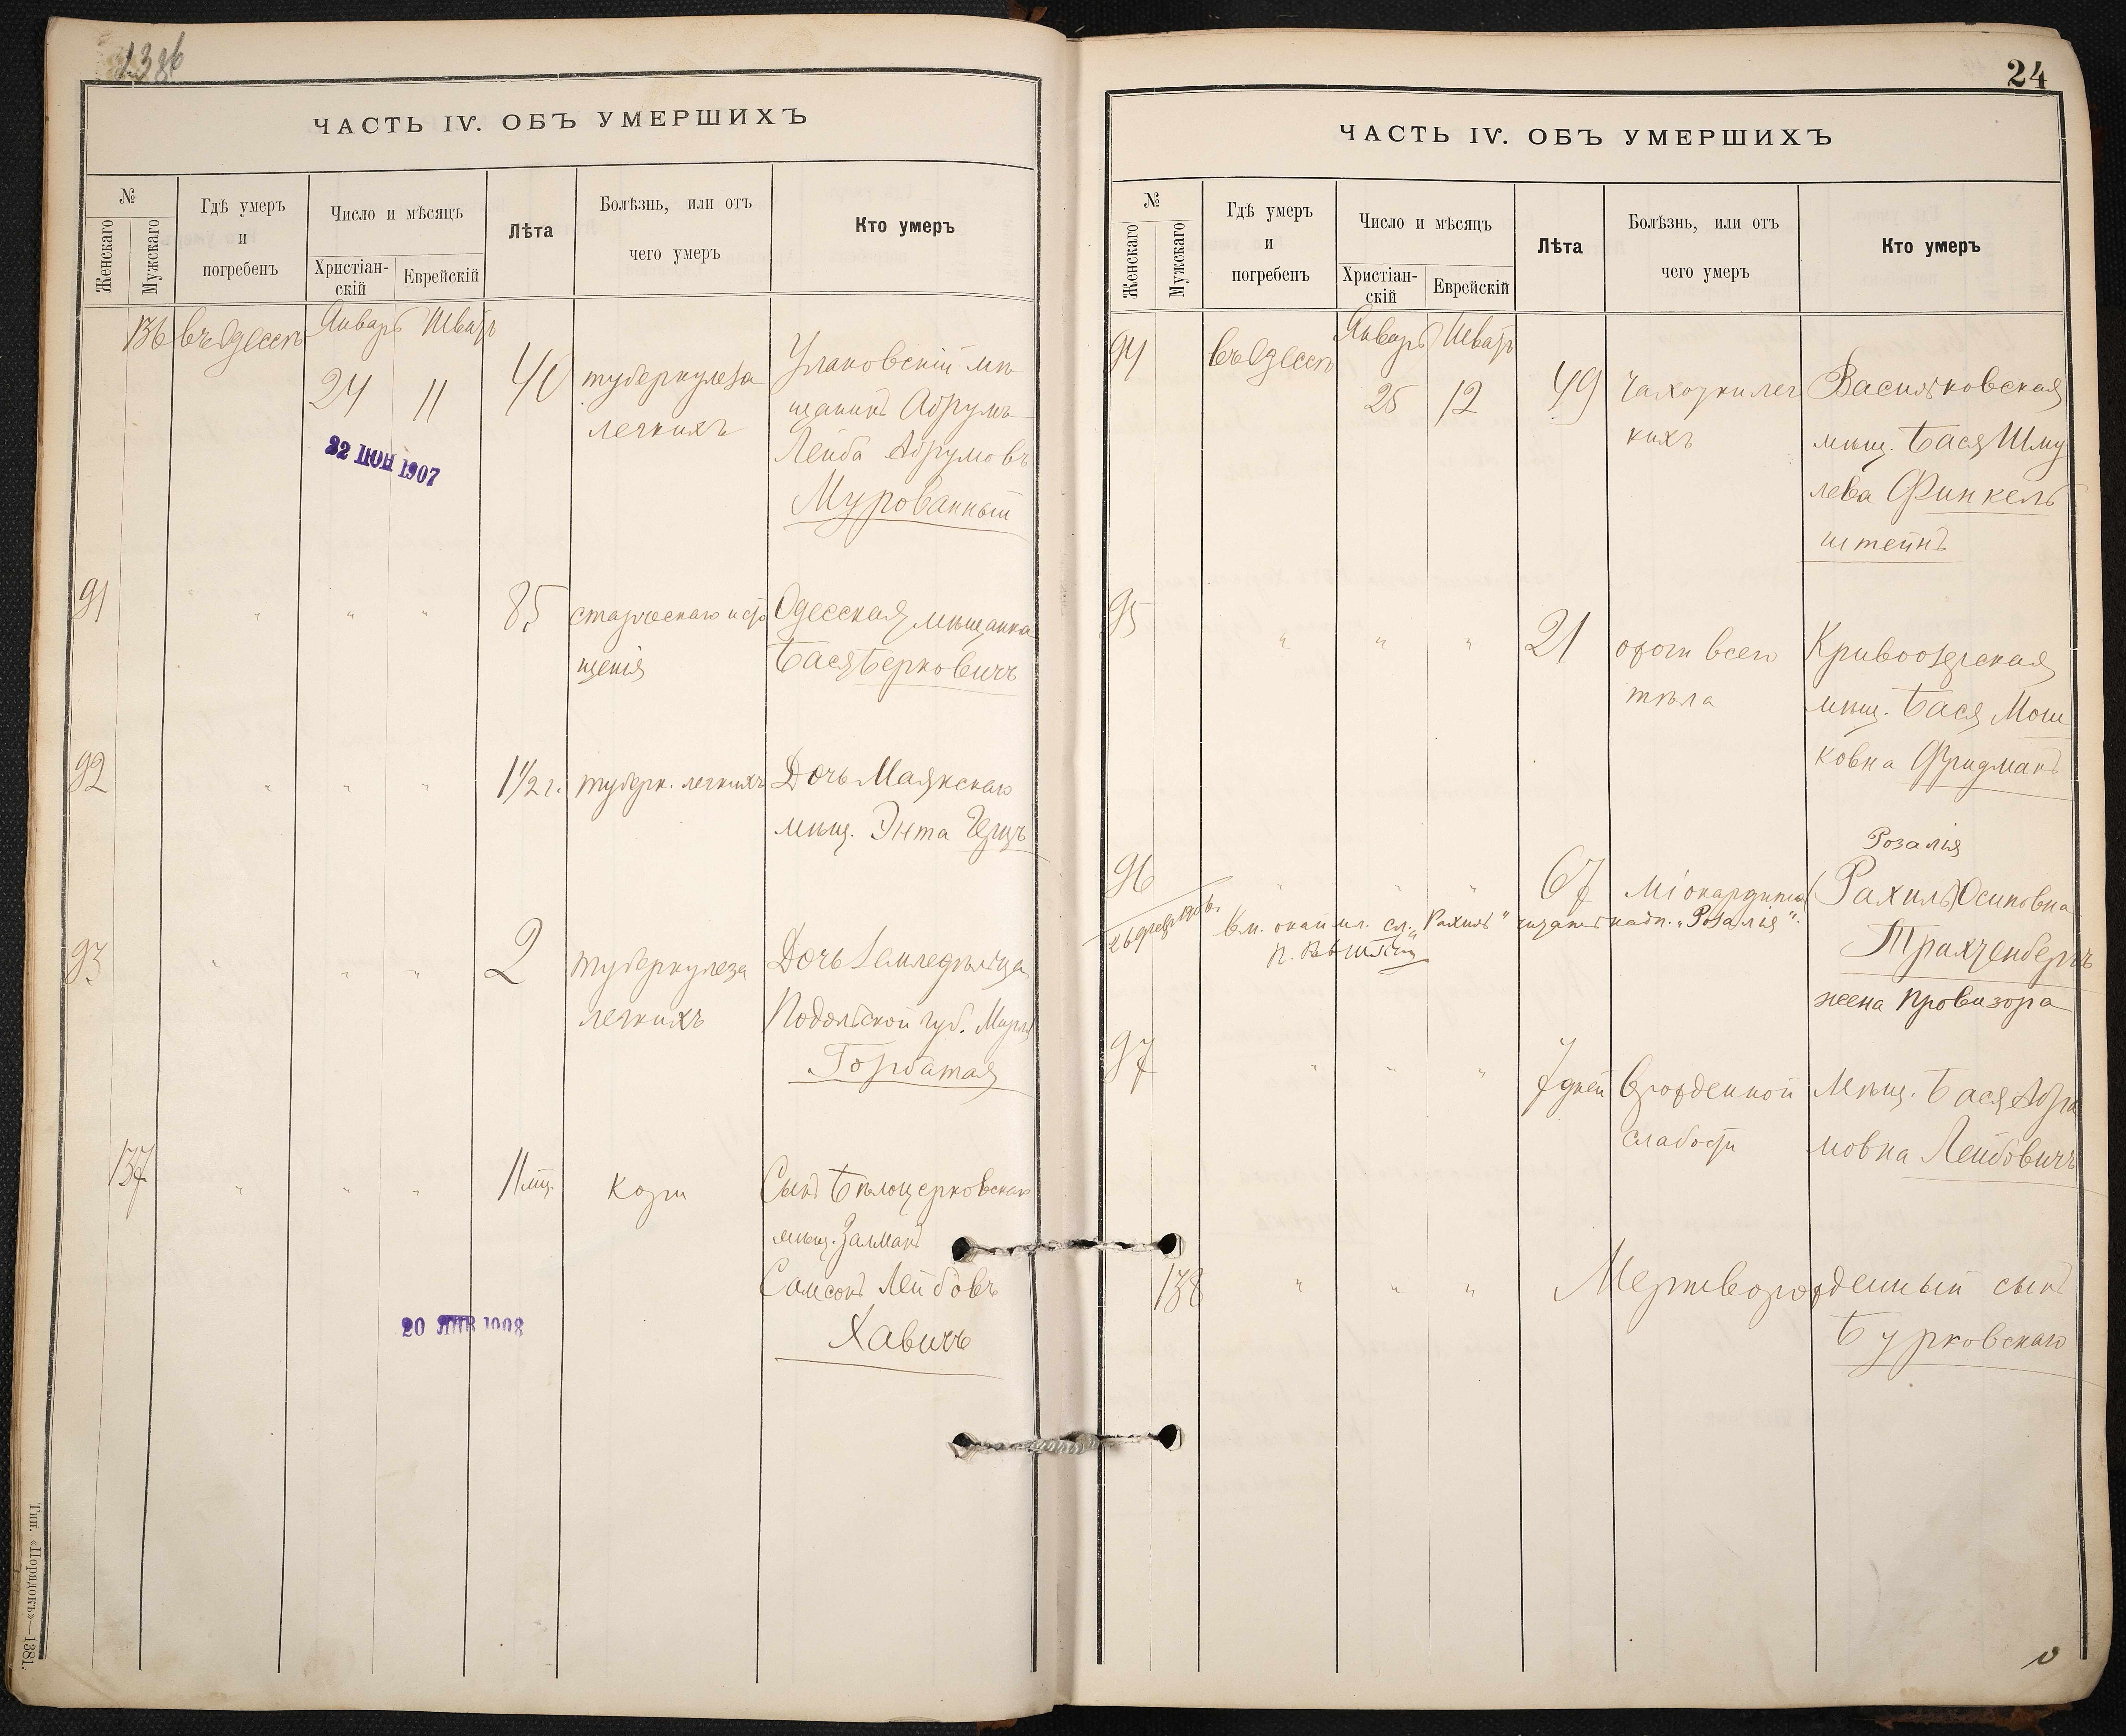 ЧАСТЬ IV. ОБЪ УМЕРШИХЪ
№
Женскаго
Мужскаго
Гдѣ умеръ
и
погребенъ
Число и мѣсяцъ
Христіан-
скій
Еврейскій
Лѣта
Болѣзнь, или отъ
чего умеръ
Кто умеръ
136 въ Одессѣ Январь Шватъ
24 11 40 туберкулеза
легкихъ
22 ІЮН 1907
Улановскій мѣ
щанинъ Абрумъ
Лейба Абрумовъ
Мурованный
91 " " " 85 старческаго исто
щенія
Одесская мѣщанка
Бася Берковичъ
92 " " " 1 1/2 г. туберк. легкихъ
Дочь Маякскаго
мѣщ. Энта Герцъ
93 " " " 2 туберкулеза
легкихъ
Дочь Земледѣльца
Подольской губ.
Горбатая
137 " " " 11 мц. Кори
Сынъ Бѣлоцерковскаго
мѣщ. Залманъ
Самсонъ Лейбовъ
Хавичъ
20 ЯНВ 1908
Тип. «Порядокъ»—1881.
24
ЧАСТЬ IV. ОБЪ УМЕРШИХЪ
№
Женскаго
Мужскаго
Гдѣ умеръ
и
погребенъ
Число и мѣсяцъ
Христіан-
скій
Еврейскій
Лѣта
Болѣзнь, или отъ
чего умеръ
Кто умеръ
94 въ Одессѣ Январь Шватъ
25 12 49 чахотки лег
кихъ
Васильковская
мѣщ. Бася Шму
лева Финкель
штейнъ
95 " " " 21 ожоги всего
тѣла
Кривоозерская
мѣщ. Бася Мош
ковна Фридманъ
Розалія
96 " " " 67 міокардита (Рахиль) Осиповна
Трахтенбергъ
жена провизора
26 февр 1906 г.
Вм. окаймл. сл. „Рахиль" читать надп. „Розалія".
97 " " " 7 дней врожденной
слабости
Мѣщ. Бася Абра
мовна Лейбовичъ
138 " " " Мертворожденный сынъ
Бурковскаго